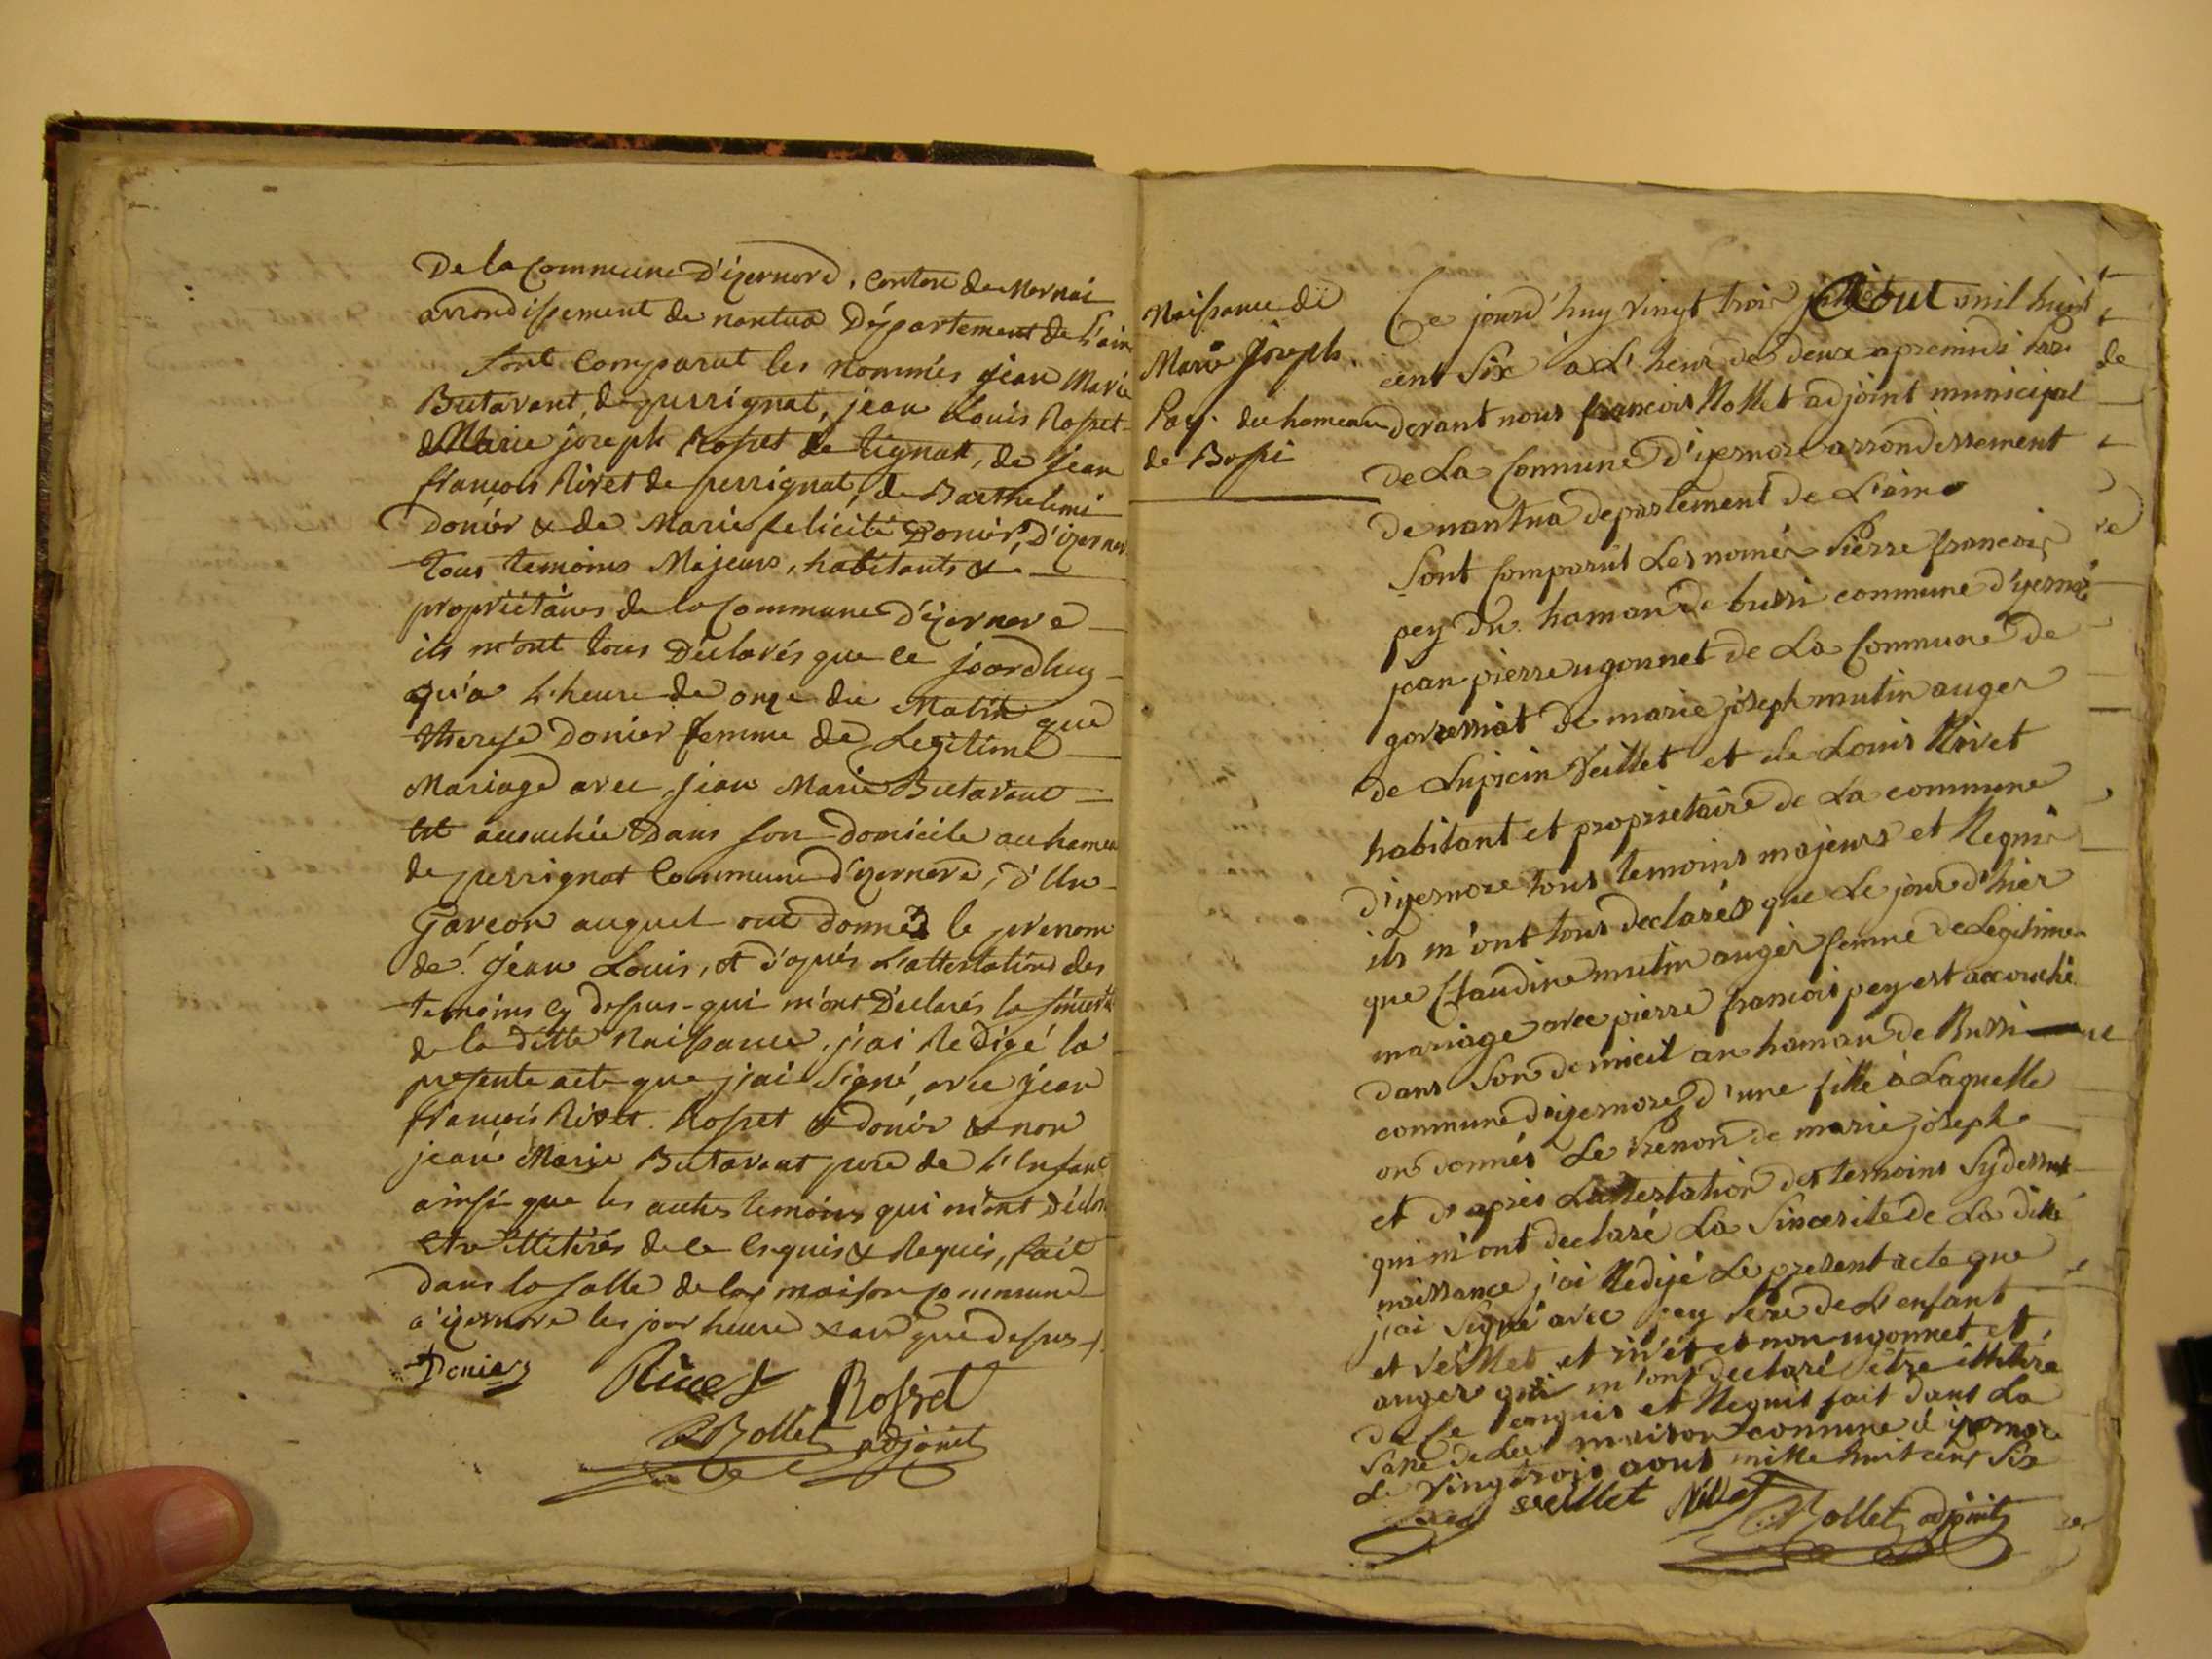 De la Commune D'izernore, Canton de Mornai
arrondissement de nantua Département de L'ain
sont Comparut les nommés jean Marie
Butavant, de perrignat, jean Louis Rosset
de Marie joseph Rosset de tignat, de jean
françois Rivet de perrignat, de Barthelemi
Donier & de Marie felicité Donier, D'izernor
tous temoins Majeurs, habitants &
propriétaires de la Commune D'izernore
ils m'ont tous Déclarés que ce jourdhuy
qu'a L'heure de onze du Matin que
therese Donier femme de Legitime
Mariage avec jean Marie Butavant
est acouchée Dans son Domicile au hameau
de perrignat Commune d'izernore, d'Un
Garcon auquel ont donnés le prenom
de jean Louis, et d'après L'attestation des
temoins cy dessus qui m'ont Déclarés la sincerité
de la ditte Naissance, j'ai Redigé la
presente acte que j'ai Signé, avec jean
françois Rivet. Rosset & donier & non
jean Marie Butavant pere de L'Enfant
ainsi que les autres temoins qui m'ont Déclaré
Etre illitérés de ce Enquis & Requis, fait
dans la salle de la maison commune
a izernore les jour heure & an que dessus
Donier Rivet Rosset
Rollet adjoint
Naissance de
Marie Joseph
Pay. du hameau
de Bossi
Ce jourd'huy vingt trois Aout mil huit
cent Six a L'heur de deux apremidi par
devant nous francois Rollet adjoint municipal
de La Commune D'izernore arrondissement
de nantua departement de L'ain
Sont Comparut Les només Pierre francois
pey du hamau de bussi commune d'izernore
jean pierre ugonnet de La Commune de
gorremiat de marie joseph mutin auger
de Lupicin Veillet et de Louis Rivet
habitant et proprietaire de La commune
d'izernore tous temoins majeurs et Requis
ils m'ont tous declarés que Le jour d'hier
que Claudine mutin auger femme de Legitime
mariage avec pierre francois pey est accouché
dans Son domicil au hamau de Bussi
commune d'izernore d'une fille à Laquelle
on donnés Le Prenom de marie joseph
et d'après L'attestation des temoins Sydessus
qui m'ont declaré La Sincerité de La ditte
naissance j'ai Redijé Le present acte que
j'ai Signé avec pey Pere de L'enfant
et Veillet et rivet et non ugonnet et
auger qui m'ont declaré être illitere
de Ce enquis et Requis fait dans La
Sale de La maison commune à izernore
Le Vingtrois aout mille huit cent Six
veillet Rivet Rollet adjoint